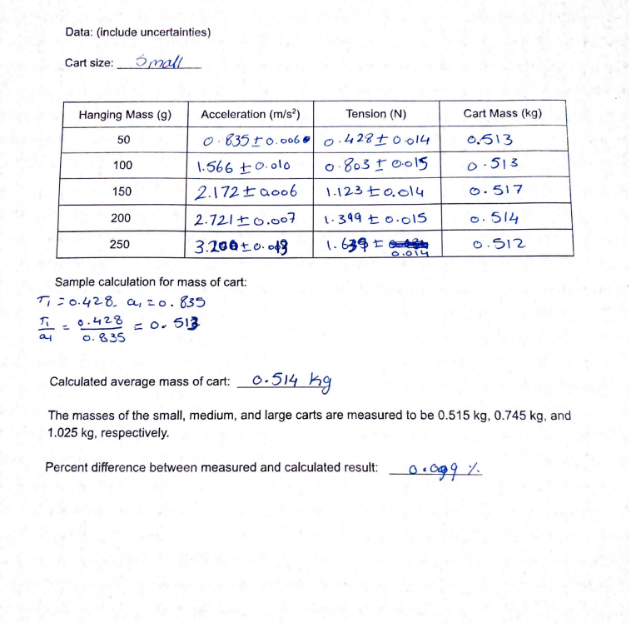 Data: (include uncertainties)
Cart size: Small
Hanging Mass (g) Acceleration (m/s²) Tension (N) Cart Mass (kg)
50 0.835±0.006 0.428±0.014 0.513
100 1.566±0.010 0.803±0.015 0.513
150 2.172±0.006 1.123±0.014 0.517
200 2.721±0.007 1.399±0.015 0.514
250 1.639± 0.014 0.512
Sample calculation for mass of cart:
T₁=0.428 a₁=0.835
T₁/a₁ = 0.428/0.835 = 0.513
Calculated average mass of cart: 0.514 kg
The masses of the small, medium, and large carts are measured to be 0.515 kg, 0.745 kg, and
1.025 kg, respectively.
Percent difference between measured and calculated result: 0.099 %